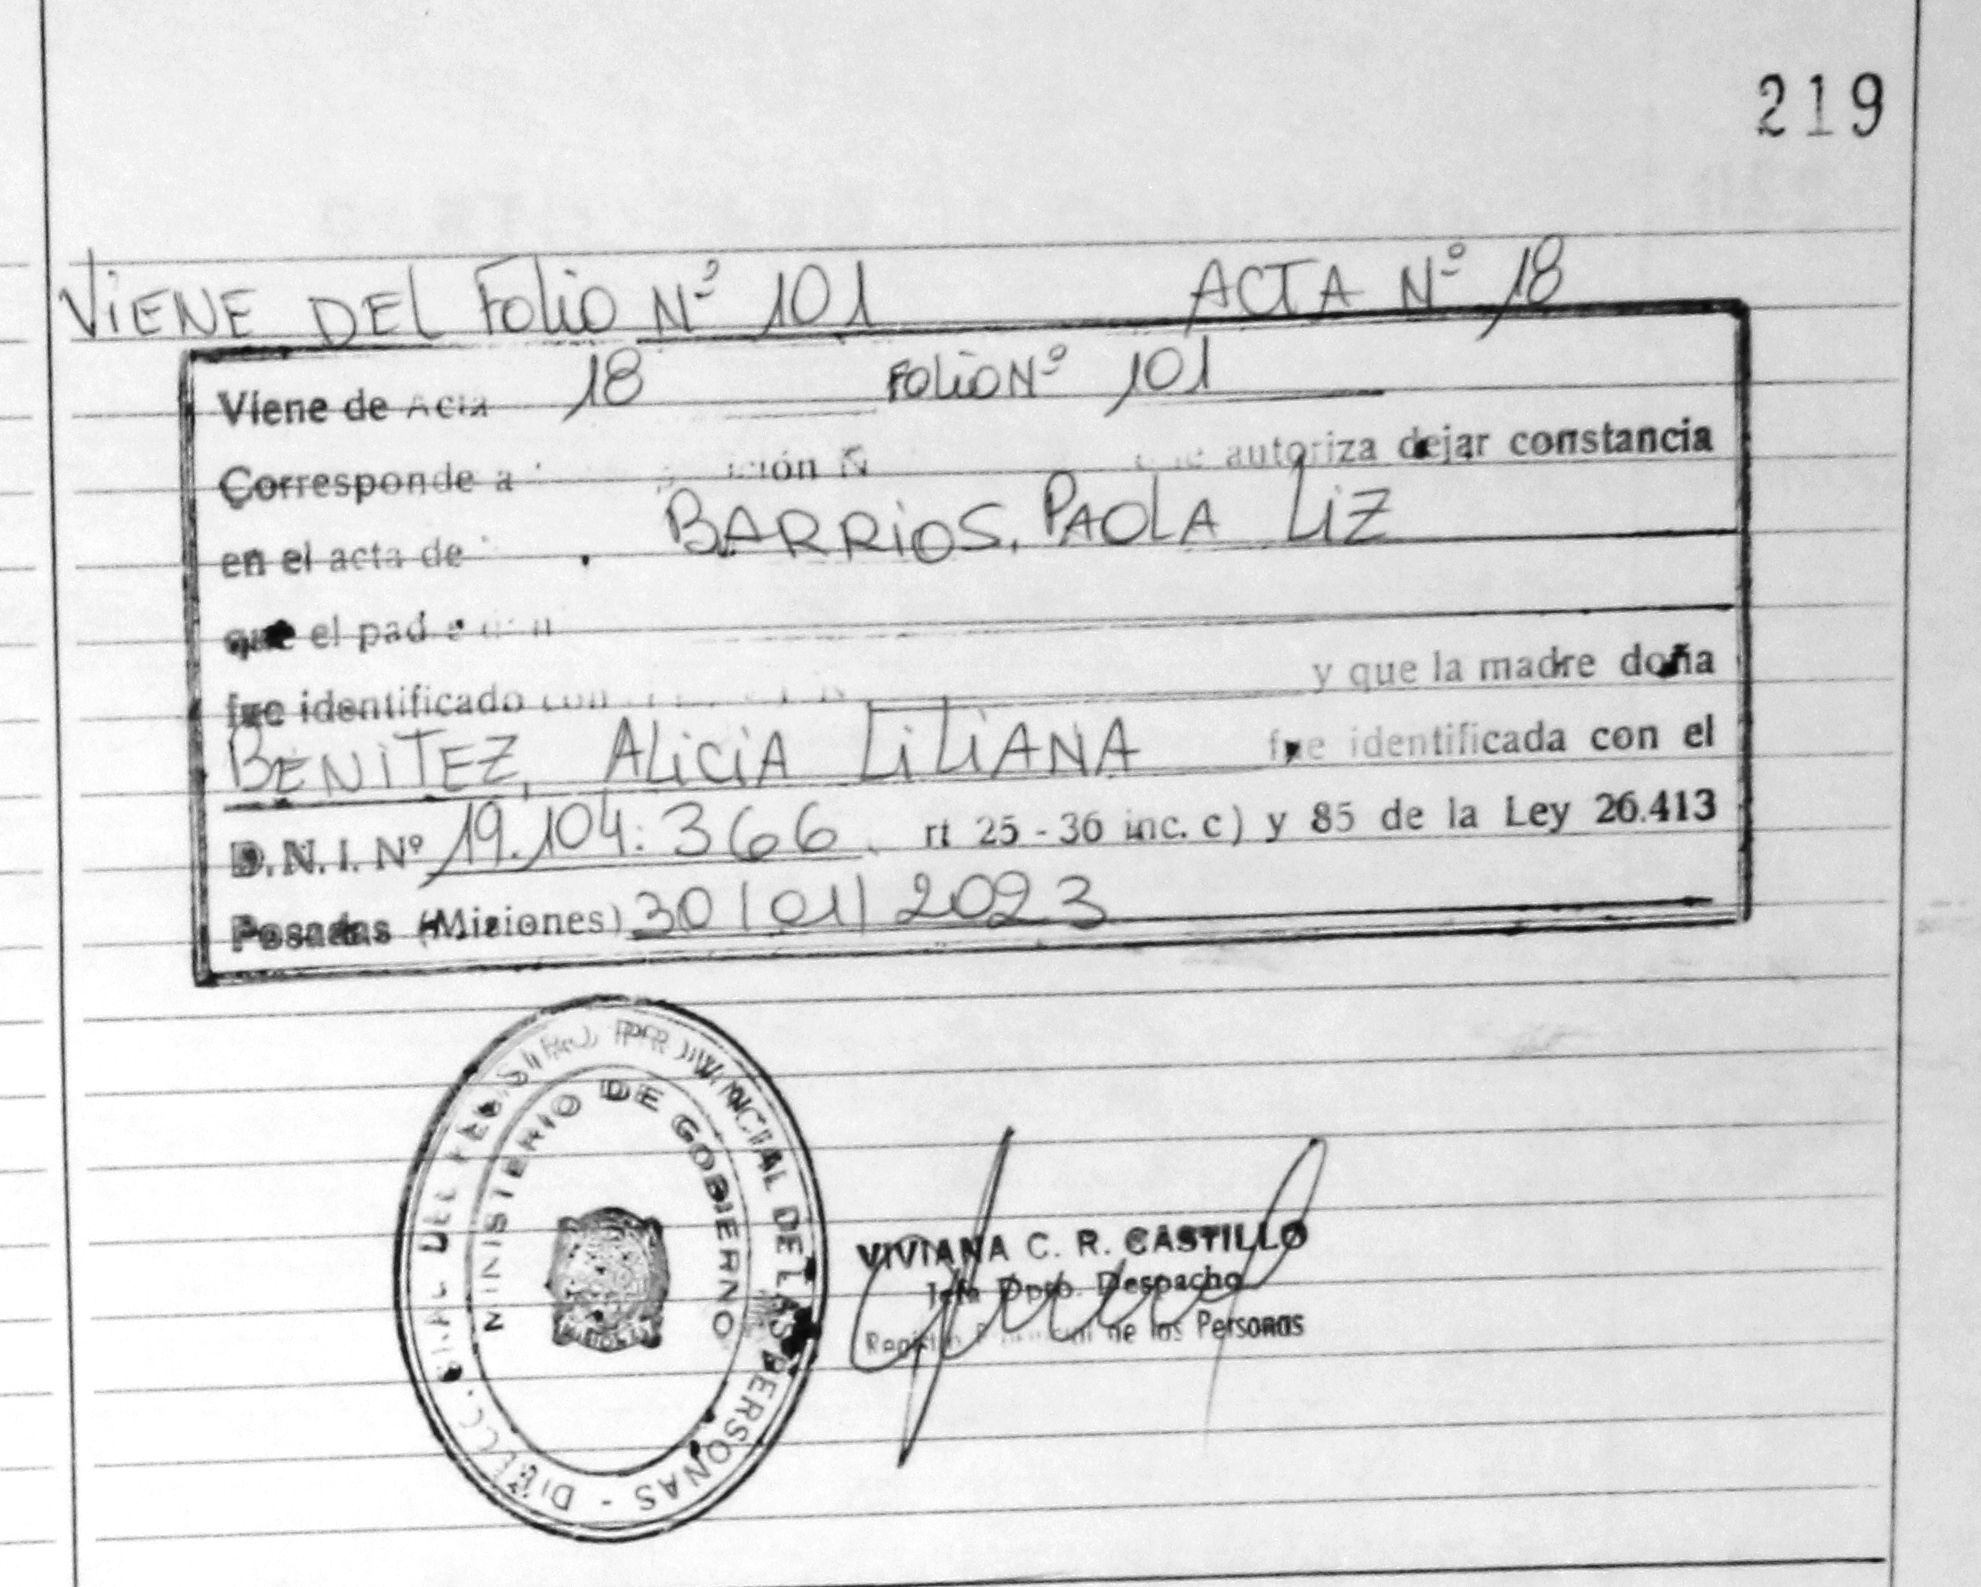 219
VIENE DEL FOLIO Nº 101 ACTA Nº 18
Viene de Acta 18 FOLIO Nº 101
Corresponde a autoriza dejar constancia
en el acta de BARRIOS, PAOLA LIZ
que el pad e
fue identificado con y que la madre doña
BENITEZ, ALICIA LILIANA fue identificada con el
D.N.I. Nº 19.104.366 rt 25 - 36 inc. c) y 85 de la Ley 26.413
Posadas (Misiones) 30/01/2023
PROVINCIAL DE LAS PERSONAS -
MINISTERIO DE GOBIERNO
VIVIANA C. R. CASTILLO
Jefa Dpto. Despacho
de las Personas